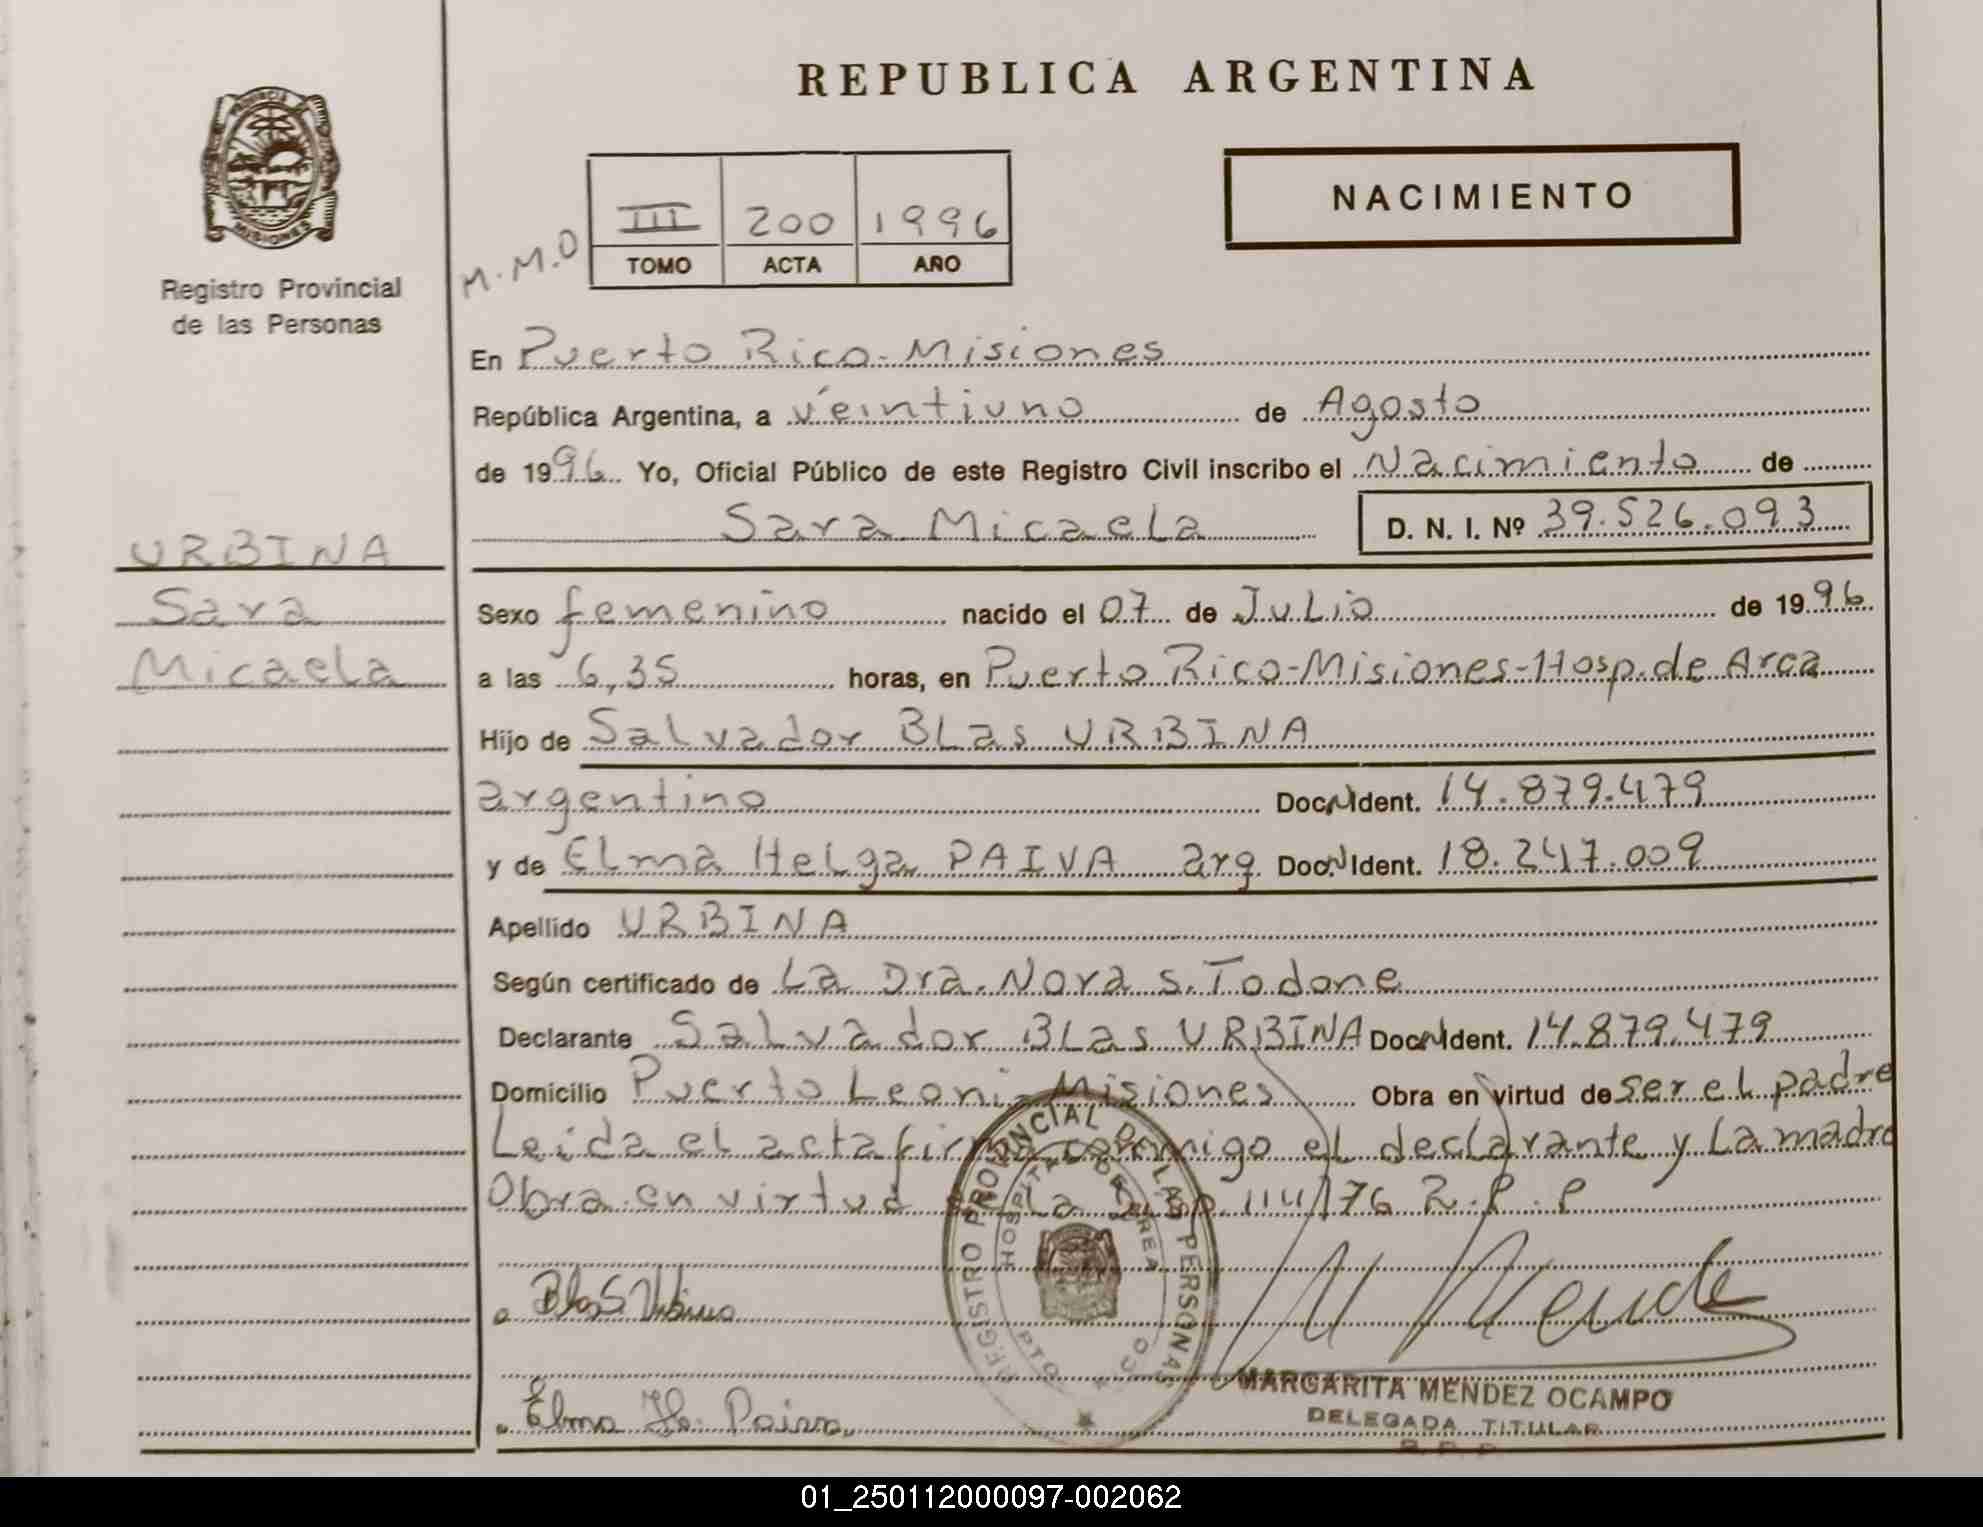 REPUBLICA ARGENTINA
PROVINCIA DE
MISIONES
Registro Provincial
de las Personas
NACIMIENTO
III 200 1996
TOMO ACTA AÑO
M.M.O
En Puerto Rico-Misiones
República Argentina, a veintiuno de Agosto
de 1996 Yo, Oficial Público de este Registro Civil inscribo el Nacimiento de
Sara Micaela D. N. I. Nº 39.526.093
URBINA
Sara
Micaela
Sexo femenino nacido el 07 de Julio de 1996
a las 6,35 horas, en Puerto Rico-Misiones-Hosp.de Area
Hijo de Salvador Blas URBINA
argentino Doc.N.Ident. 14.879.479
y de Elma Helga PAIVA arg. Doc.N.Ident. 18.247.009
Apellido URBINA
Según certificado de La Dra. Nora S. Todone
Declarante Salvador Blas URBINA Doc.N.Ident. 14.879.479
Domicilio Puerto Leoni-Misiones Obra en virtud de ser el padre
Leida el acta firma conmigo el declarante y La madre
Obra en virtud de La Disp. 114/76 R.P.P
REGISTRO PROVINCIAL DE LAS PERSONAS
HOSPITAL DE AREA
PTO. RICO
Blas S. Urbina
Elma H. Paiva
M Mendez
MARGARITA MENDEZ OCAMPO
DELEGADA TITULAR
R. P. P.
01_250112000097-002062